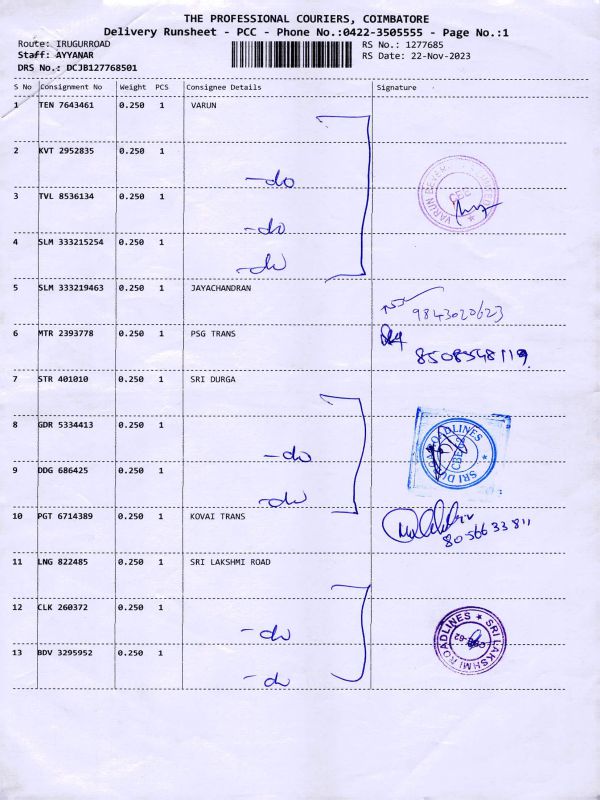 THE PROFESSIONAL COURIERS, COIMBATORE
Delivery Runsheet - PCC - Phone No.:0422-3505555 - Page No.:1
Route: IRUGURROAD RS No.: 1277685
Staff: AYYANAR RS Date: 22-Nov-2023
DRS No.: DCJB127768501
S No Consignment No Weight PCS Consignee Details Signature
1 TEN 7643461 0.250 1 VARUN
2 KVT 2952835 0.250 1
-do
3 TVL 8536134 0.250 1
-do
4 SLM 333215254 0.250 1
-do
5 SLM 333219463 0.250 1 JAYACHANDRAN
9843020623
6 MTR 2393778 0.250 1 PSG TRANS
8508548119
7 STR 401010 0.250 1 SRI DURGA
8 GDR 5334413 0.250 1
-do
SRI DURGA ROADLINES
9 DDG 686425 0.250 1
-do
10 PGT 6714389 0.250 1 KOVAI TRANS
8056633811
11 LNG 822485 0.250 1 SRI LAKSHMI ROAD
12 CLK 260372 0.250 1
-do
SRI LAKSHMI ROADLINES
13 BDV 3295952 0.250 1
-do